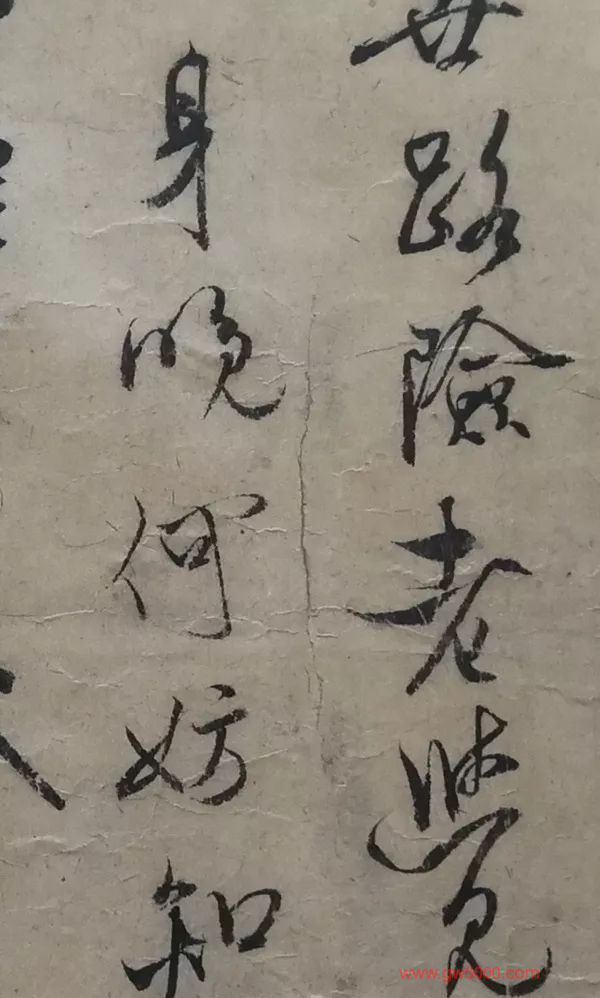 世路險老覺
身晚何妨知
www.gw5000.com